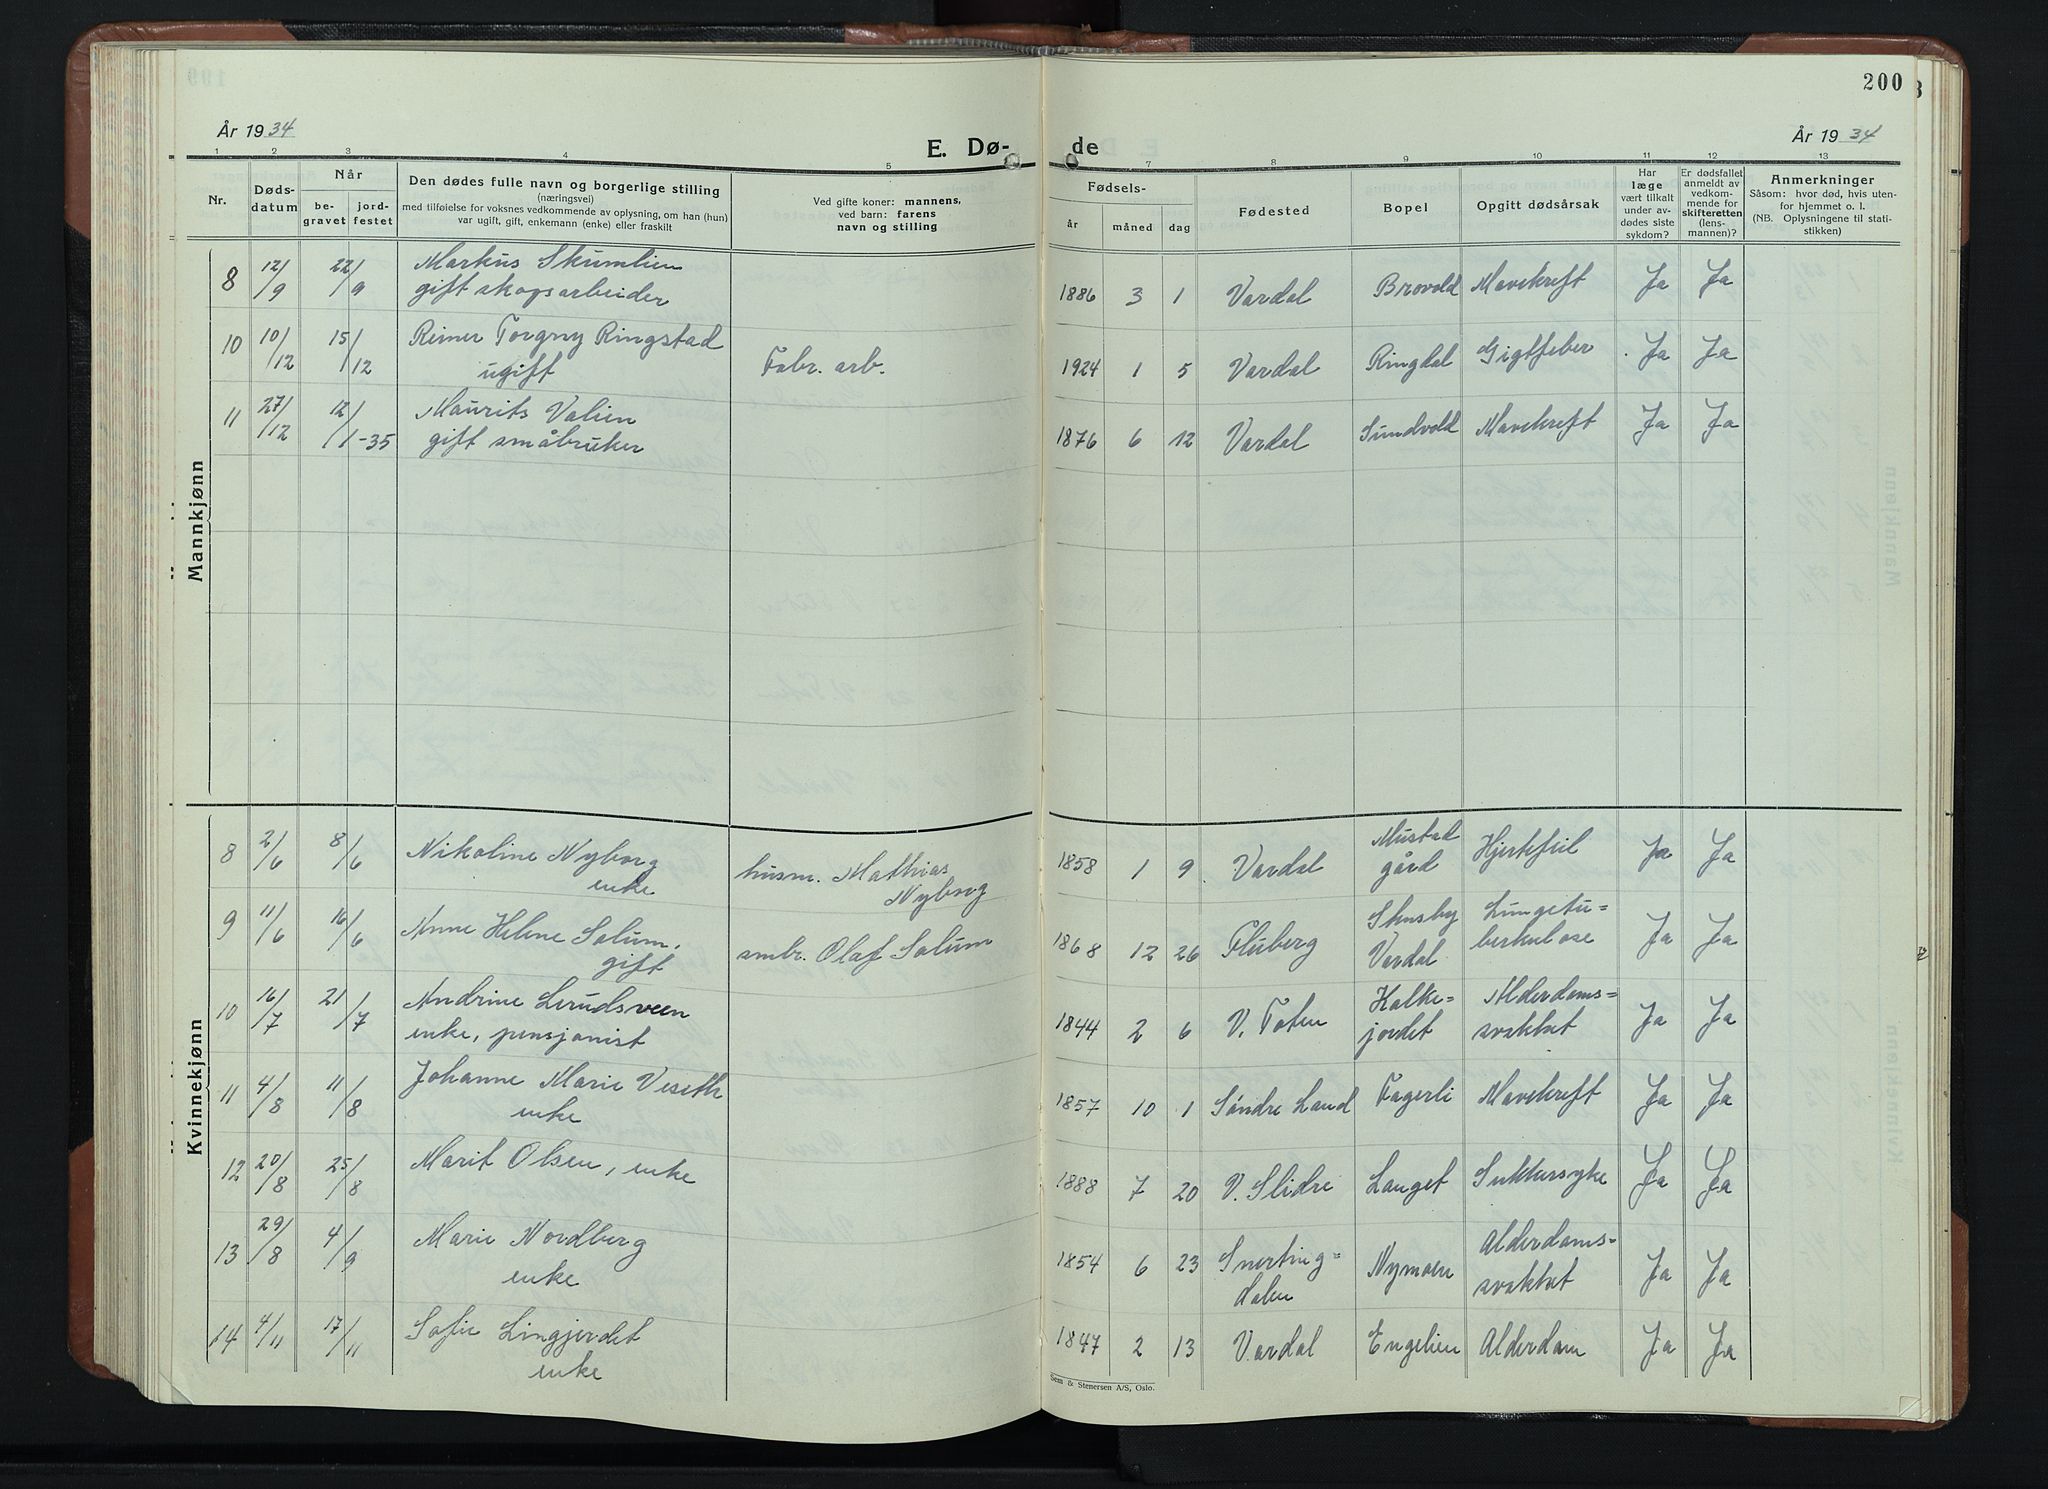 200
År 1934
E. Dø-
de
År 1934
1 2 3 4 5 7 8 9 10 11 12 13
Nr.
Døds-
datum
Når
be-
gravet
jord-
festet
Den dødes fulle navn og borgerlige stilling
(næringsvei)
med tilføielse for voksnes vedkommende av oplysning, om han (hun)
var ugift, gift, enkemann (enke) eller fraskilt
Ved gifte koner: mannens,
ved barn: farens
navn og stilling
Fødsels-
år måned dag
Fødested
Bopel
Opgitt dødsårsak
Har
læge
vært tilkalt
under av-
dødes siste
sykdom?
Er dødsfallet
anmeldt av
vedkom-
mende for
skifteretten
(lens-
mannen)?
Anmerkninger
Såsom: hvor død, hvis uten-
for hjemmet o. l.
(NB. Oplysningene til stati-
stikken)
Mannkjønn
8 12/9 22/9 Markus Skumlien
gift skogsarbeider
1886 3 1 Vardal Brovold Mavekreft Ja Ja
10 10/12 15/12 Reimer Torgny Ringstad
ugift
Fabr. arb.
1924 1 5 Vardal Ringdal Gigtfeber Ja Ja
11 27/12 12/1-35 Maurits Valien
gift småbruker
1876 6 12 Vardal Sundvold Mavekreft Ja Ja
Kvinnekjønn
8 2/6 8/6 Nikoline Nyborg
enke
husm. Mathias
Nyborg
1858 1 9 Vardal Mustad
gård
Hjertefeil Ja Ja
9 11/6 16/6 Anne Helene Solum,
gift
smbr. Olaf Solum
1868 12 26 Fluberg Skusby
Vardal
Lungetu=
berkulose
Ja Ja
10 16/7 21/7 Andrine Lerudsveen
enke, pensjonist
1844 2 6 V. Toten Kalke=
jordet
Alderdoms=
svakhet
Ja Ja
11 4/8 11/8 Johanne Marie Veseth
enke
1857 10 1 Søndre Land Fagerli Mavekreft Ja Ja
12 20/8 25/8 Marit Olsen, enke
1888 7 20 V. Slidre Langet Sukkersyke Ja Ja
13 29/8 4/9 Marie Nordberg
enke
1854 6 23 Snerting=
dalen
Nymoen Alderdoms=
svakhet
Ja Ja
14 4/11 17/11 Sofie Lingjerdet
enke
1847 2 13 Vardal Engelien Alderdom Ja Ja
Sem & Stenersen A/S, Oslo.